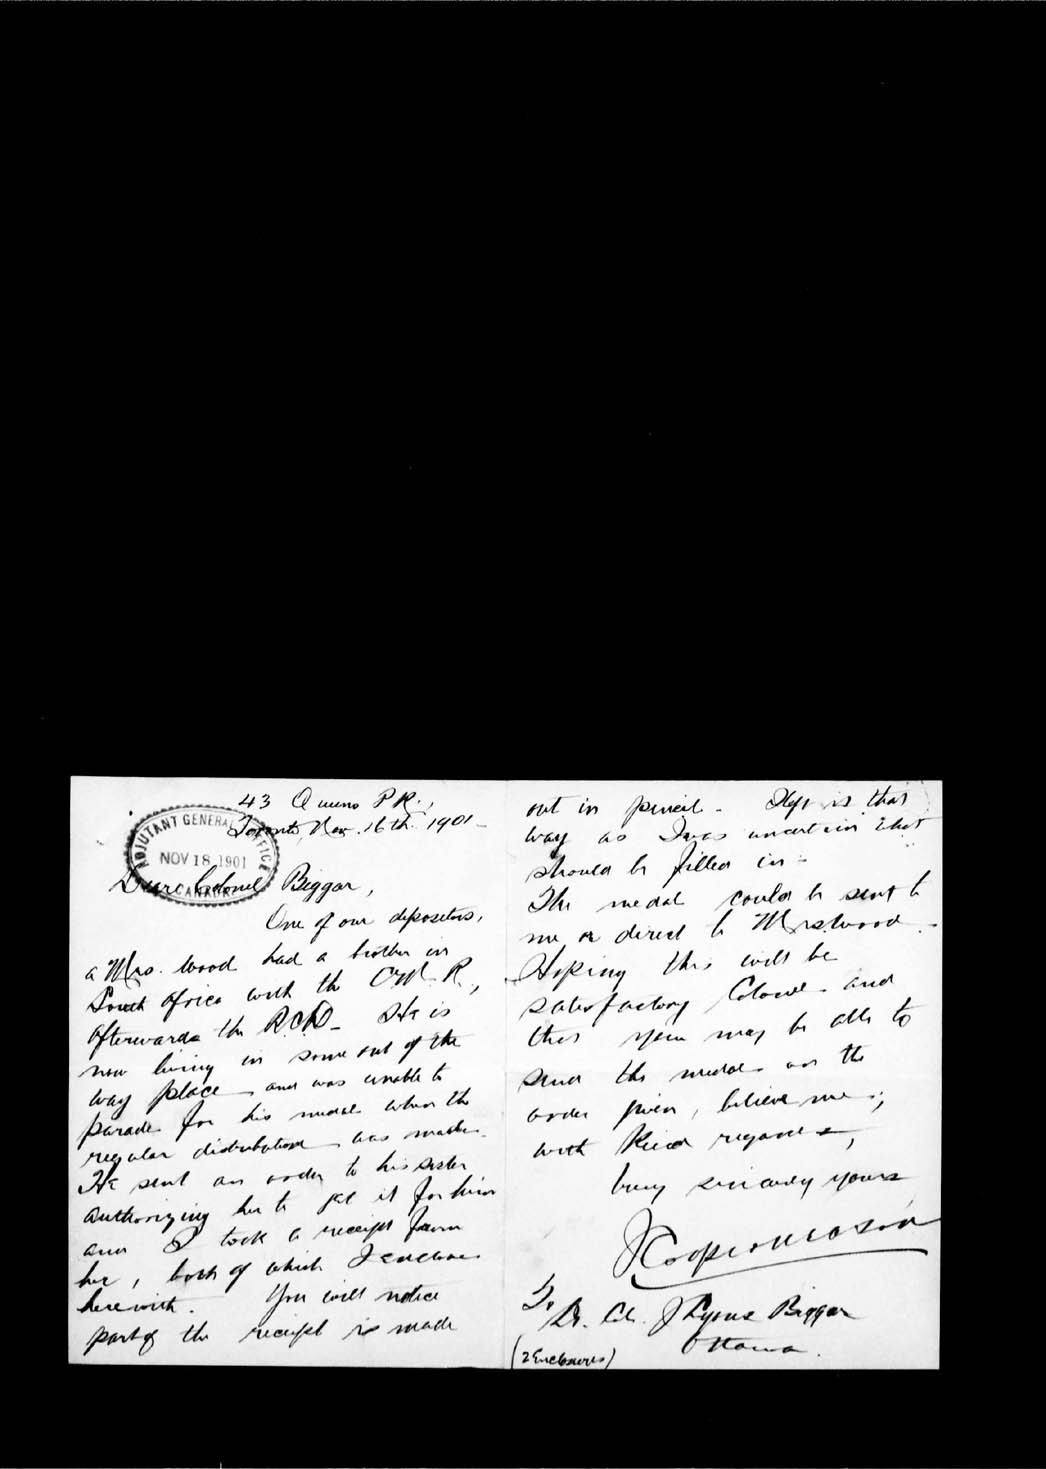 43 Queens P.K.,
Toronto, Nov. 16th. 1901-
ADJUTANT GENERAL'S OFFICE
NOV 18 1901
CANADA
Dear Colonel Biggar,
One of our depositors,
a Mrs. Wood had a brother in
South Africa with the C.M.R.,
afterwards the R.C.D- He is
now living in some out of the
way place and was unable to
parade for his medal when the
regular distribution was made.
He sent an order to his sister
authorizing her to get it for him
and I took a receipt from
her, both of which I enclose
herewith. You will notice
part of the receipt is made
out in pencil- Kept is that
way as I was uncertain what
should be filled in-
The medal could be sent to
me or direct to Mrs Wood.-
Hoping this will be
satisfactory Colonel and
that you may be able to
send the medal on the
order given, believe me,
with Kind regards,
Very sincerely yours
J Cooper Mason
To
Lt. Col. J Lyons Biggar
Ottawa.
(2 Enclosures)